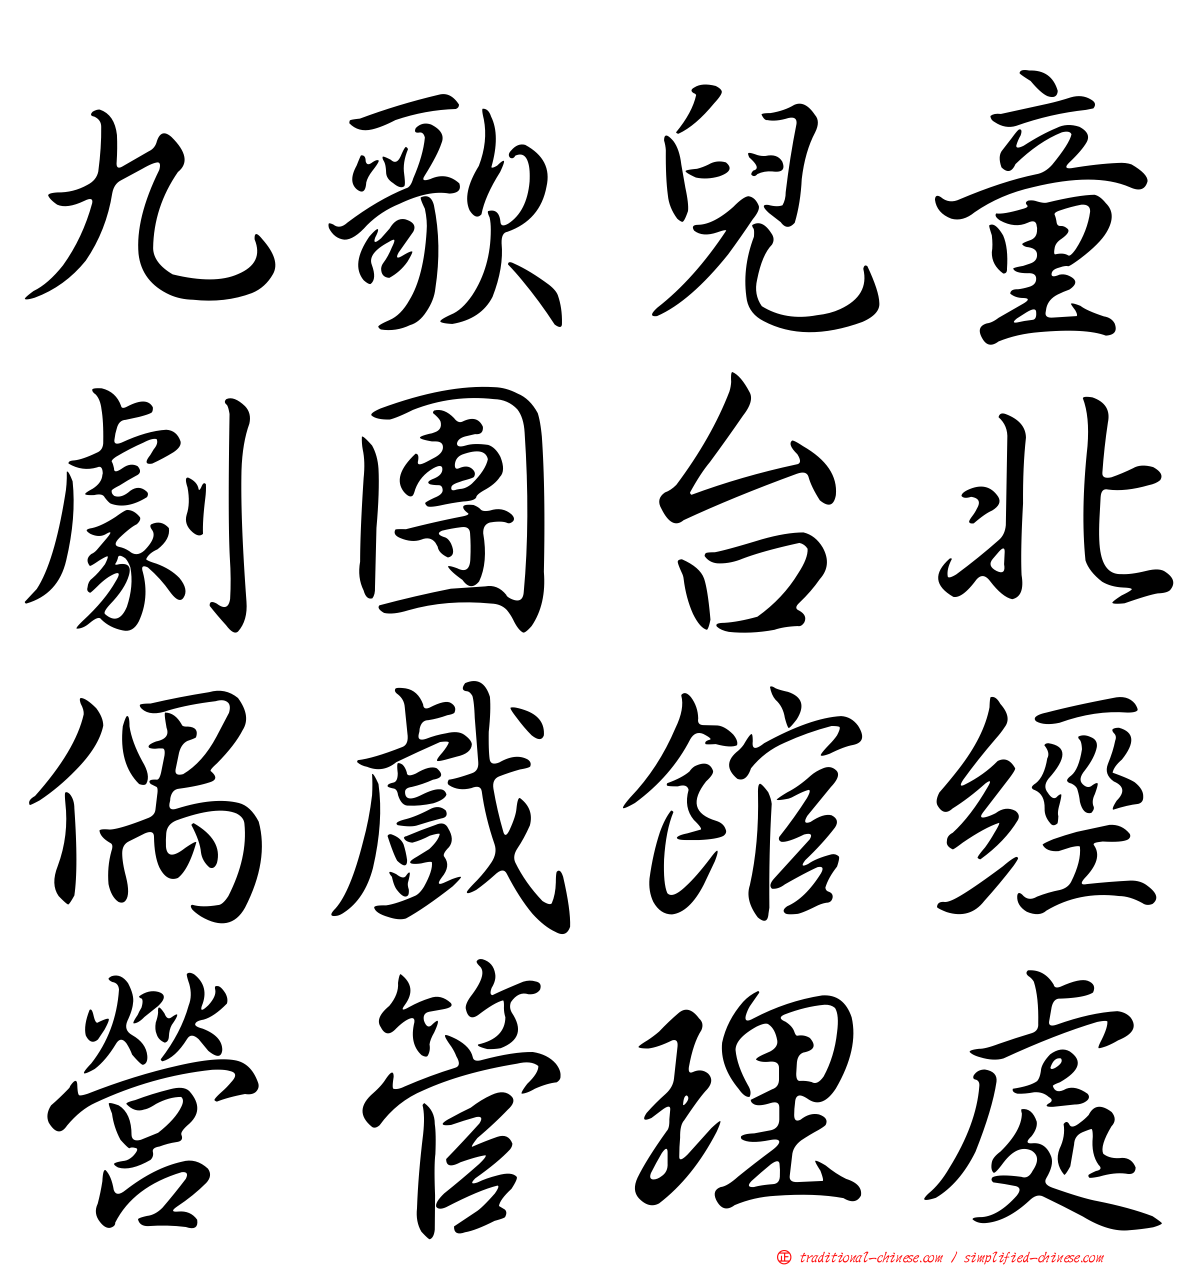 九歌兒童
劇團台北
偶戲館經
營管理處
正 traditional-chinese.com / simplified-chinese.com